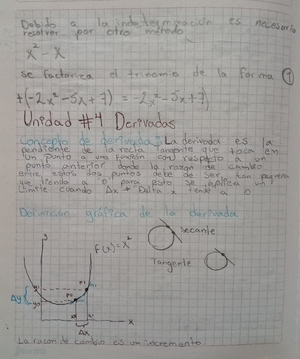 Debido a la indeterminación es necesario
resolver por otro método
x² - x
se factoriza el trinomio de la forma
+(-2x²-5x+7) = -2x²-5x+7)
Unidad #4 Derivadas
Concepto de derivada: La derivada es la
pendiente de la recta tangente que toca en
un punto a una función con respecto a un
punto posterior donde la razón de cambio
entre estos dos puntos debe de ser tan pequeña
que tienda a 0 para esto se aplica un
limite cuando Δx + Delta x tende a 0
Definición gráfica de la derivada
y
F(x)=x²
secante
Tangente
Δy
x
Δx
La razon de cambio es un incremento